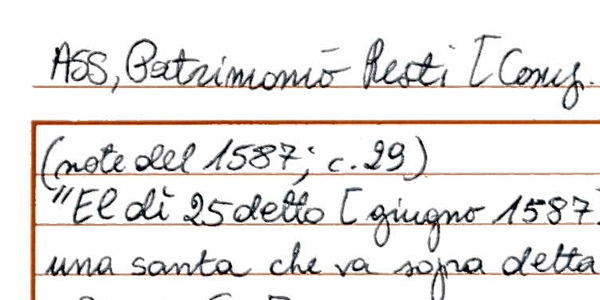 ASS, Patrimonio Resti [Cong.
(note del 1587; c. 29)
"El dì 25 detto [giugno 1587]
una santa che va sopra detta